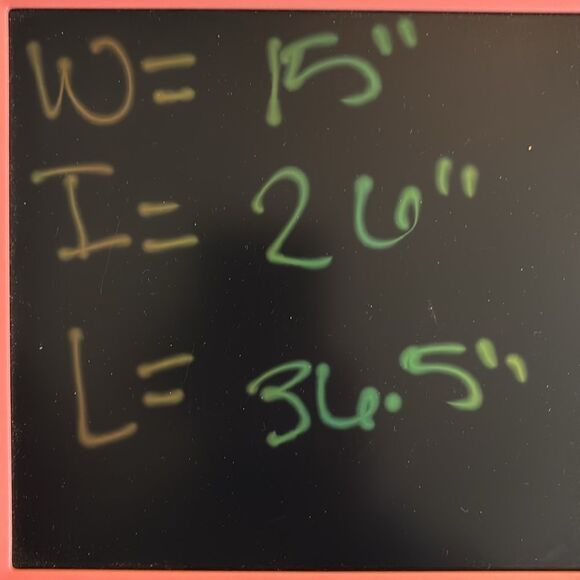 W= 15"
I= 26"
L= 36.5"